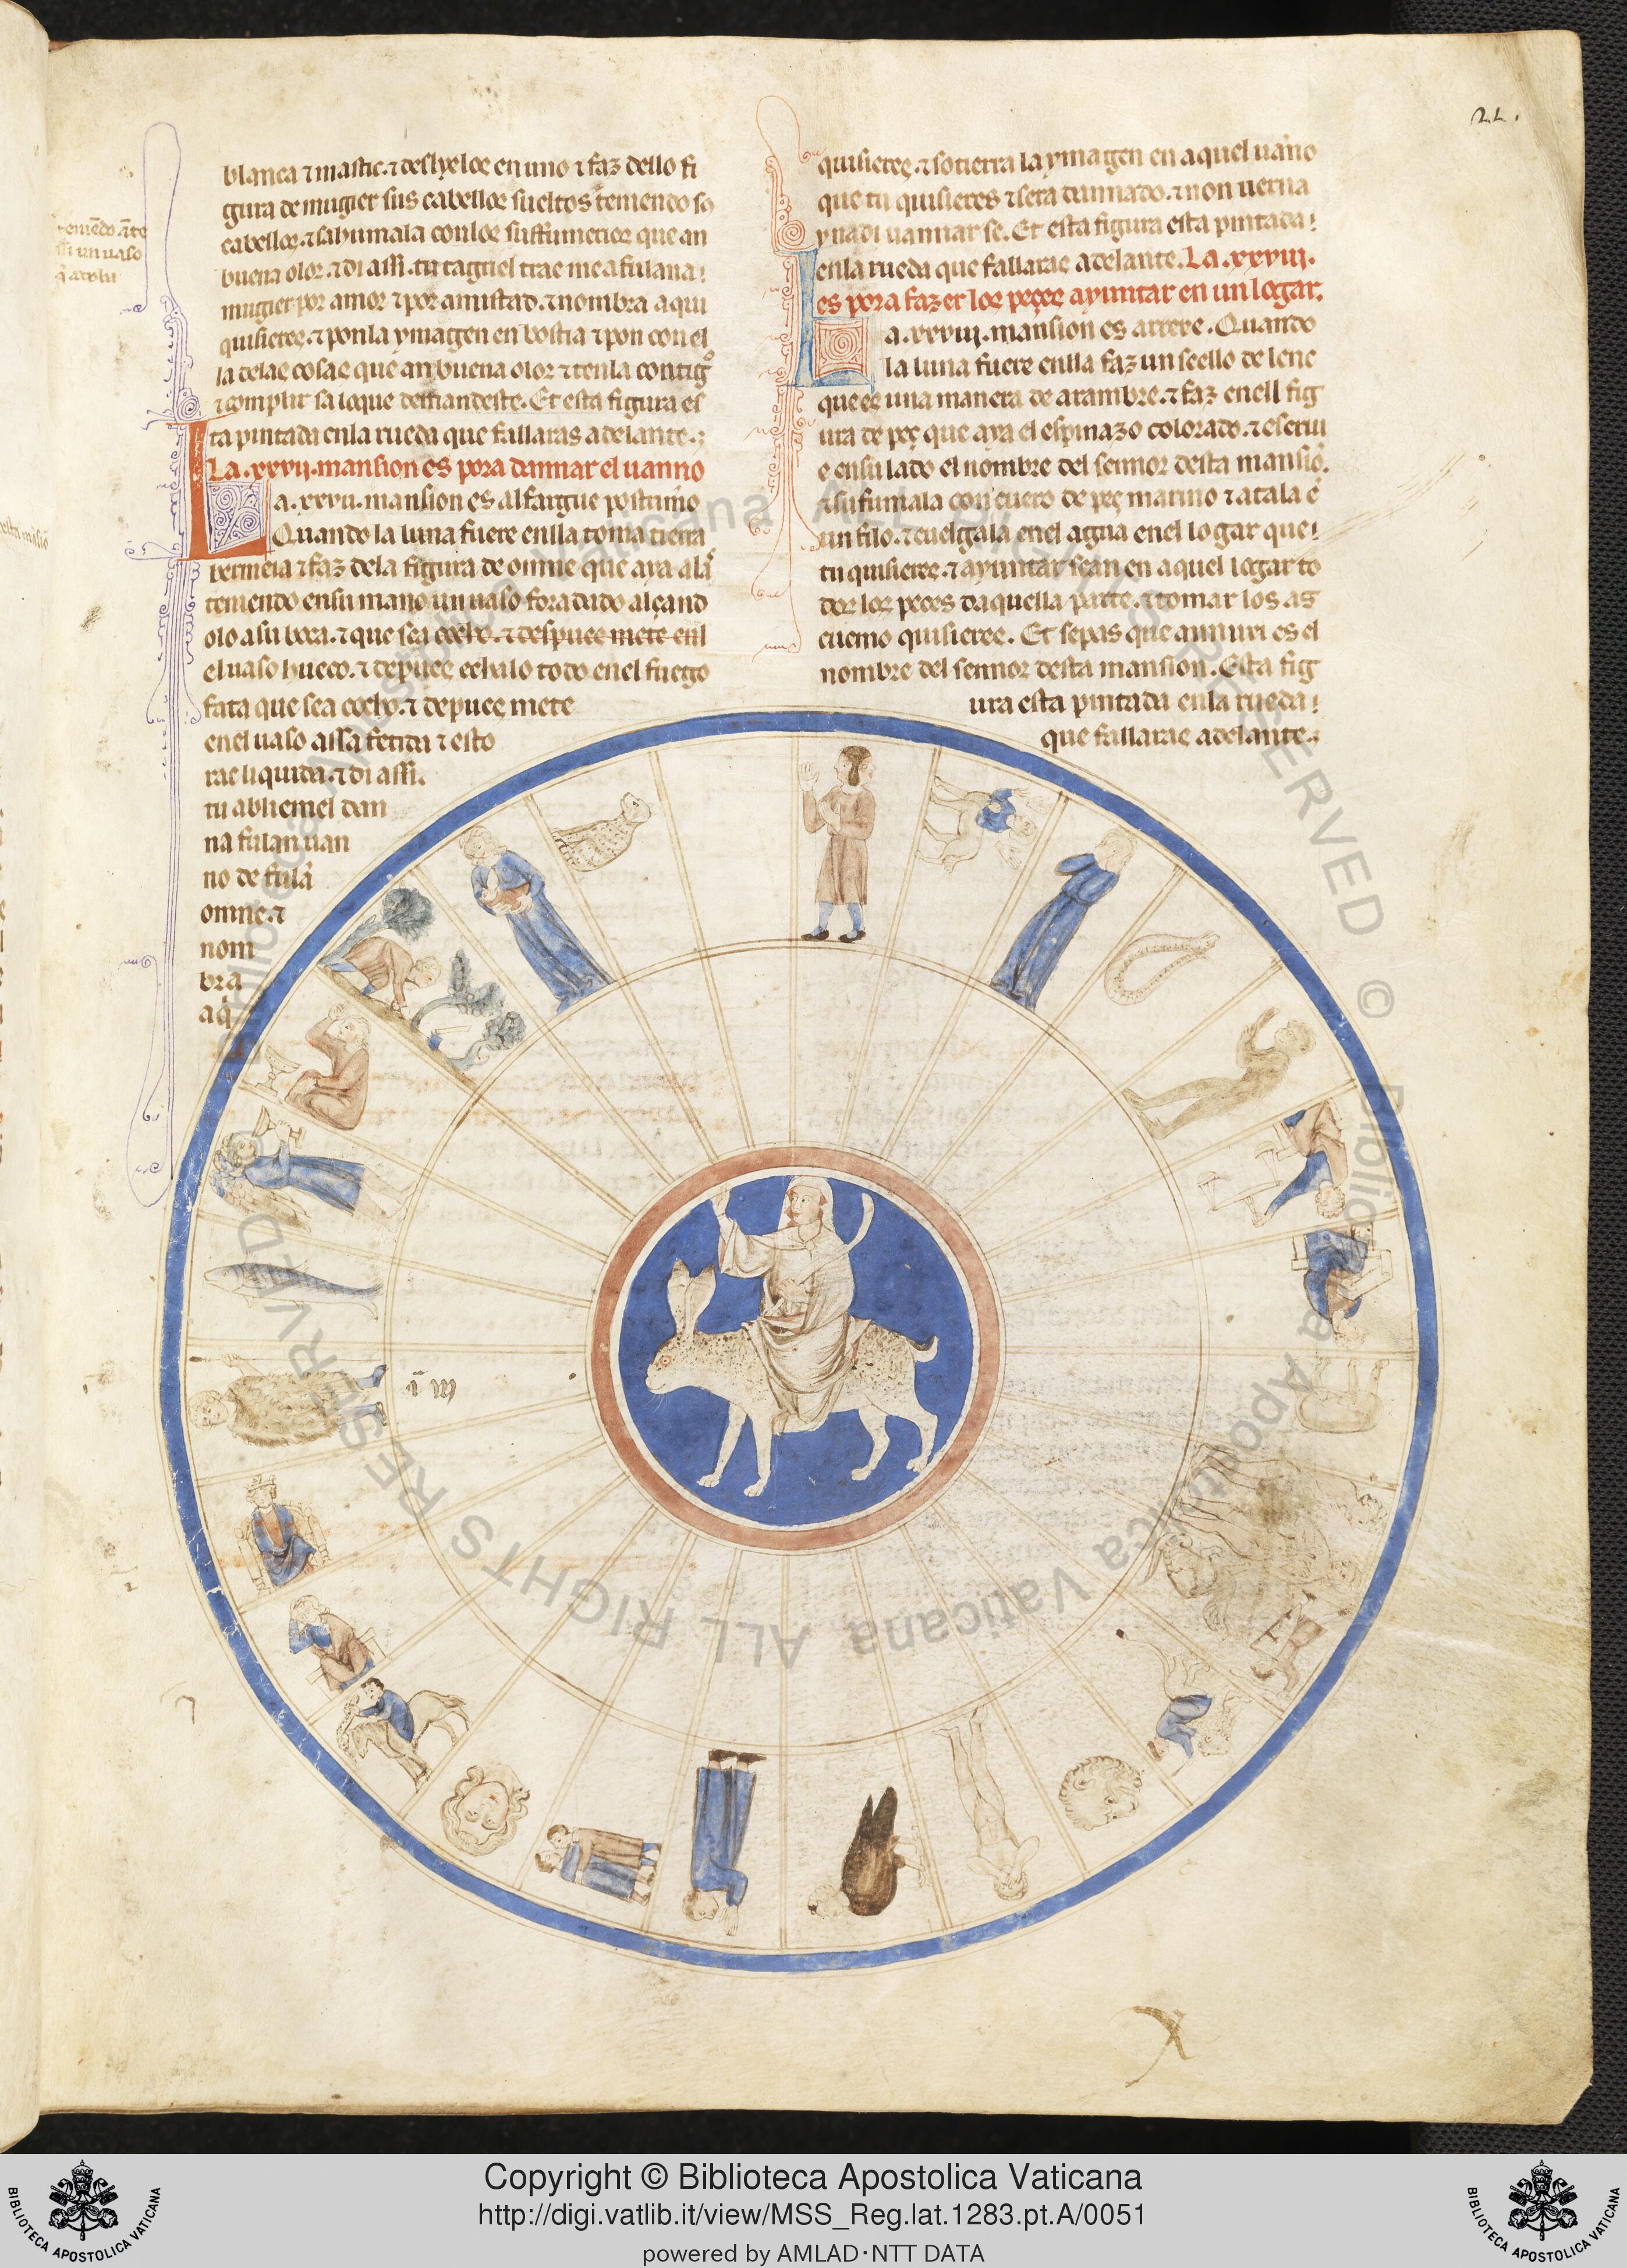 22.
blanca ⁊ mastic. ⁊ deslyeloς en uno ⁊ faz dello fi
gura de mugier sus cabelloς sueltos teniendo so
cabelloς. ⁊ sahumala con loς suffumerioς que an
buena olor. ⁊ di assi. tu tagriel trae me a fulana
mugier por amor ⁊ por amistad. ⁊ nombra a qui
quisiereς. ⁊ pon la ymagen en bostia ⁊ pon con el
la delaς cosaς que an buena olor ⁊ tenla contigo
⁊ complir sa loque demandeste. Et esta figura es
ta pintada enla rueda que fallaras adelante.
La .xxvij. mansion es pora dannar el uanno
La .xxvij. mansion es alfargue postrimo
Quando la luna fuere enlla toma tierra
bermeia ⁊ faz dela figura de omne que aya alaς
teniendo en su mano un uaso foradado alçand
olo a su boca. ⁊ que sea cocho. ⁊ despues mete enl
el uaso hueco. ⁊ depueς echalo todo enel fuego
fata que sea cocho. ⁊ depueς mete
enel uaso assa fetida ⁊ esto
raς liquida. ⁊ di assi.
tu abliemel dan
na fulan uan
no de fulã
omne. ⁊
nom
bra
a q̃
teniẽdo ãte
ssi un uaso
quisiereς. ⁊ sotierra la ymagen en aquel uãno
que tu quisieres ⁊ sera dannado. ⁊ non uerna
y nadi uannar se. Et esta figura esta pintada
enla rueda que fallaraς adelante. La .xxviij.
es pora fazer loς peçeς ayuntar en un logar.
La .xxviij. mansion es arrexe. Quando
la luna fuere enlla faz un seello de lene
que eς una manera de arambre. ⁊ faz enell fig
ura de peç que aya el espinazo colorado. ⁊ escriu
e en su lado el nombre del sennor desta mansiõ.
⁊ sufumala con cuero de peç marino ⁊ atala ẽ
un filo. ⁊ cuelgala enel agua enel logar que
tu quisiereς. ⁊ ayuntar sean en aquel logar to
dos los peces daquella parte. ⁊ tomar los as
cuemo quisiereς. Et sepas que annuxi es el
nombre del sennor desta mansion. Esta fig
ura esta pintada enla rueda
que fallaraς adelante.
Copyright © Biblioteca Apostolica Vaticana
http://digi.vatlib.it/view/MSS_Reg.lat.1283.pt.A/0051
powered by AMLAD·NTT DATA
BIBLIOTECA APOSTOLICA VATICANA
BIBLIOTECA APOSTOLICA VATICANA
Biblioteca Apostolica Vaticana ALL RIGHTS RESERVED © Biblioteca Apostolica Vaticana ALL RIGHTS RESERVED ©